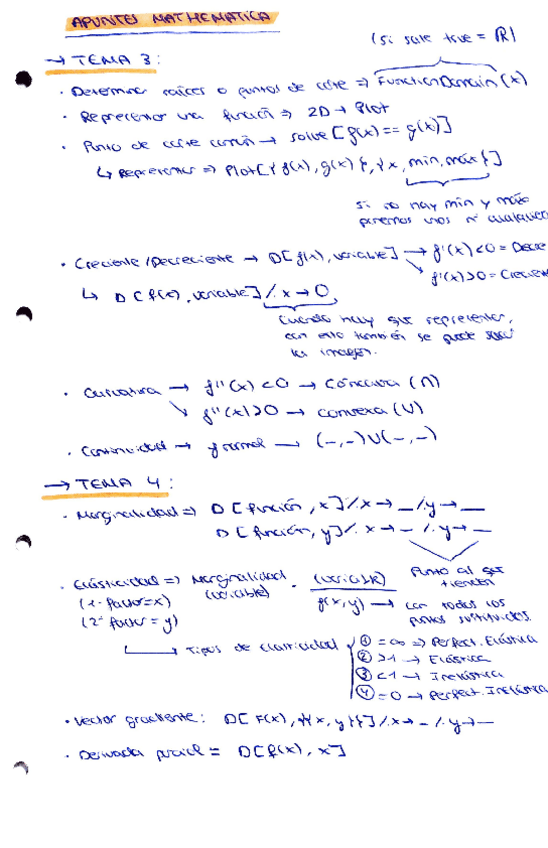 APUNTES MATHEMATICA
(si sale true = ℝ)
→ TEMA 3:
· Determinar raíces o puntos de corte ⇒ FunctionDomain(x)
· Representar una función ⇒ 2D → Plot
· Punto de corte común → solve [f(x) == g(x)]
↳ Representar ⇒ Plot[{f(x), g(x)}, {x, min, máx}]
si no hay min y máx
ponemos unos nº cualquiera
· Creciente/Decreciente → D[f(x), variable] → f'(x)<0 = Decre
f'(x)>0 = Crecien
↳ D[f(x), variable] /. x → 0
Cuando hay que representar,
con esto también se puede
las imágen.
· Curvatura → f''(x) <0 → Cóncava (∩)
f''(x) >0 → convexa (U)
· Continuidad → y normal → (-,-)U(-,-)
→ TEMA 4:
· Marginalidad ⇒ D[función, x] /. x → _ /. y → _
D[función, y] /. x → _ /. y → _
Punto al que
tienden
· Elasticidad ⇒ Marginalidad (variable) · (variable) / f(x,y) → con todos los
puntos sustituidos.
(1º factor = x)
(2º factor = y)
↳ Tipos de elasticidad
① = ∞ ⇒ Perfect. Elástica
② >1 → Elástica
③ <1 → Inelástica
④ = 0 → Perfect. Inelástica
· Vector gradiente: D[F(x), {{x, y}}] /. x → _ /. y → _
· Derivada parcial = D[f(x), x]